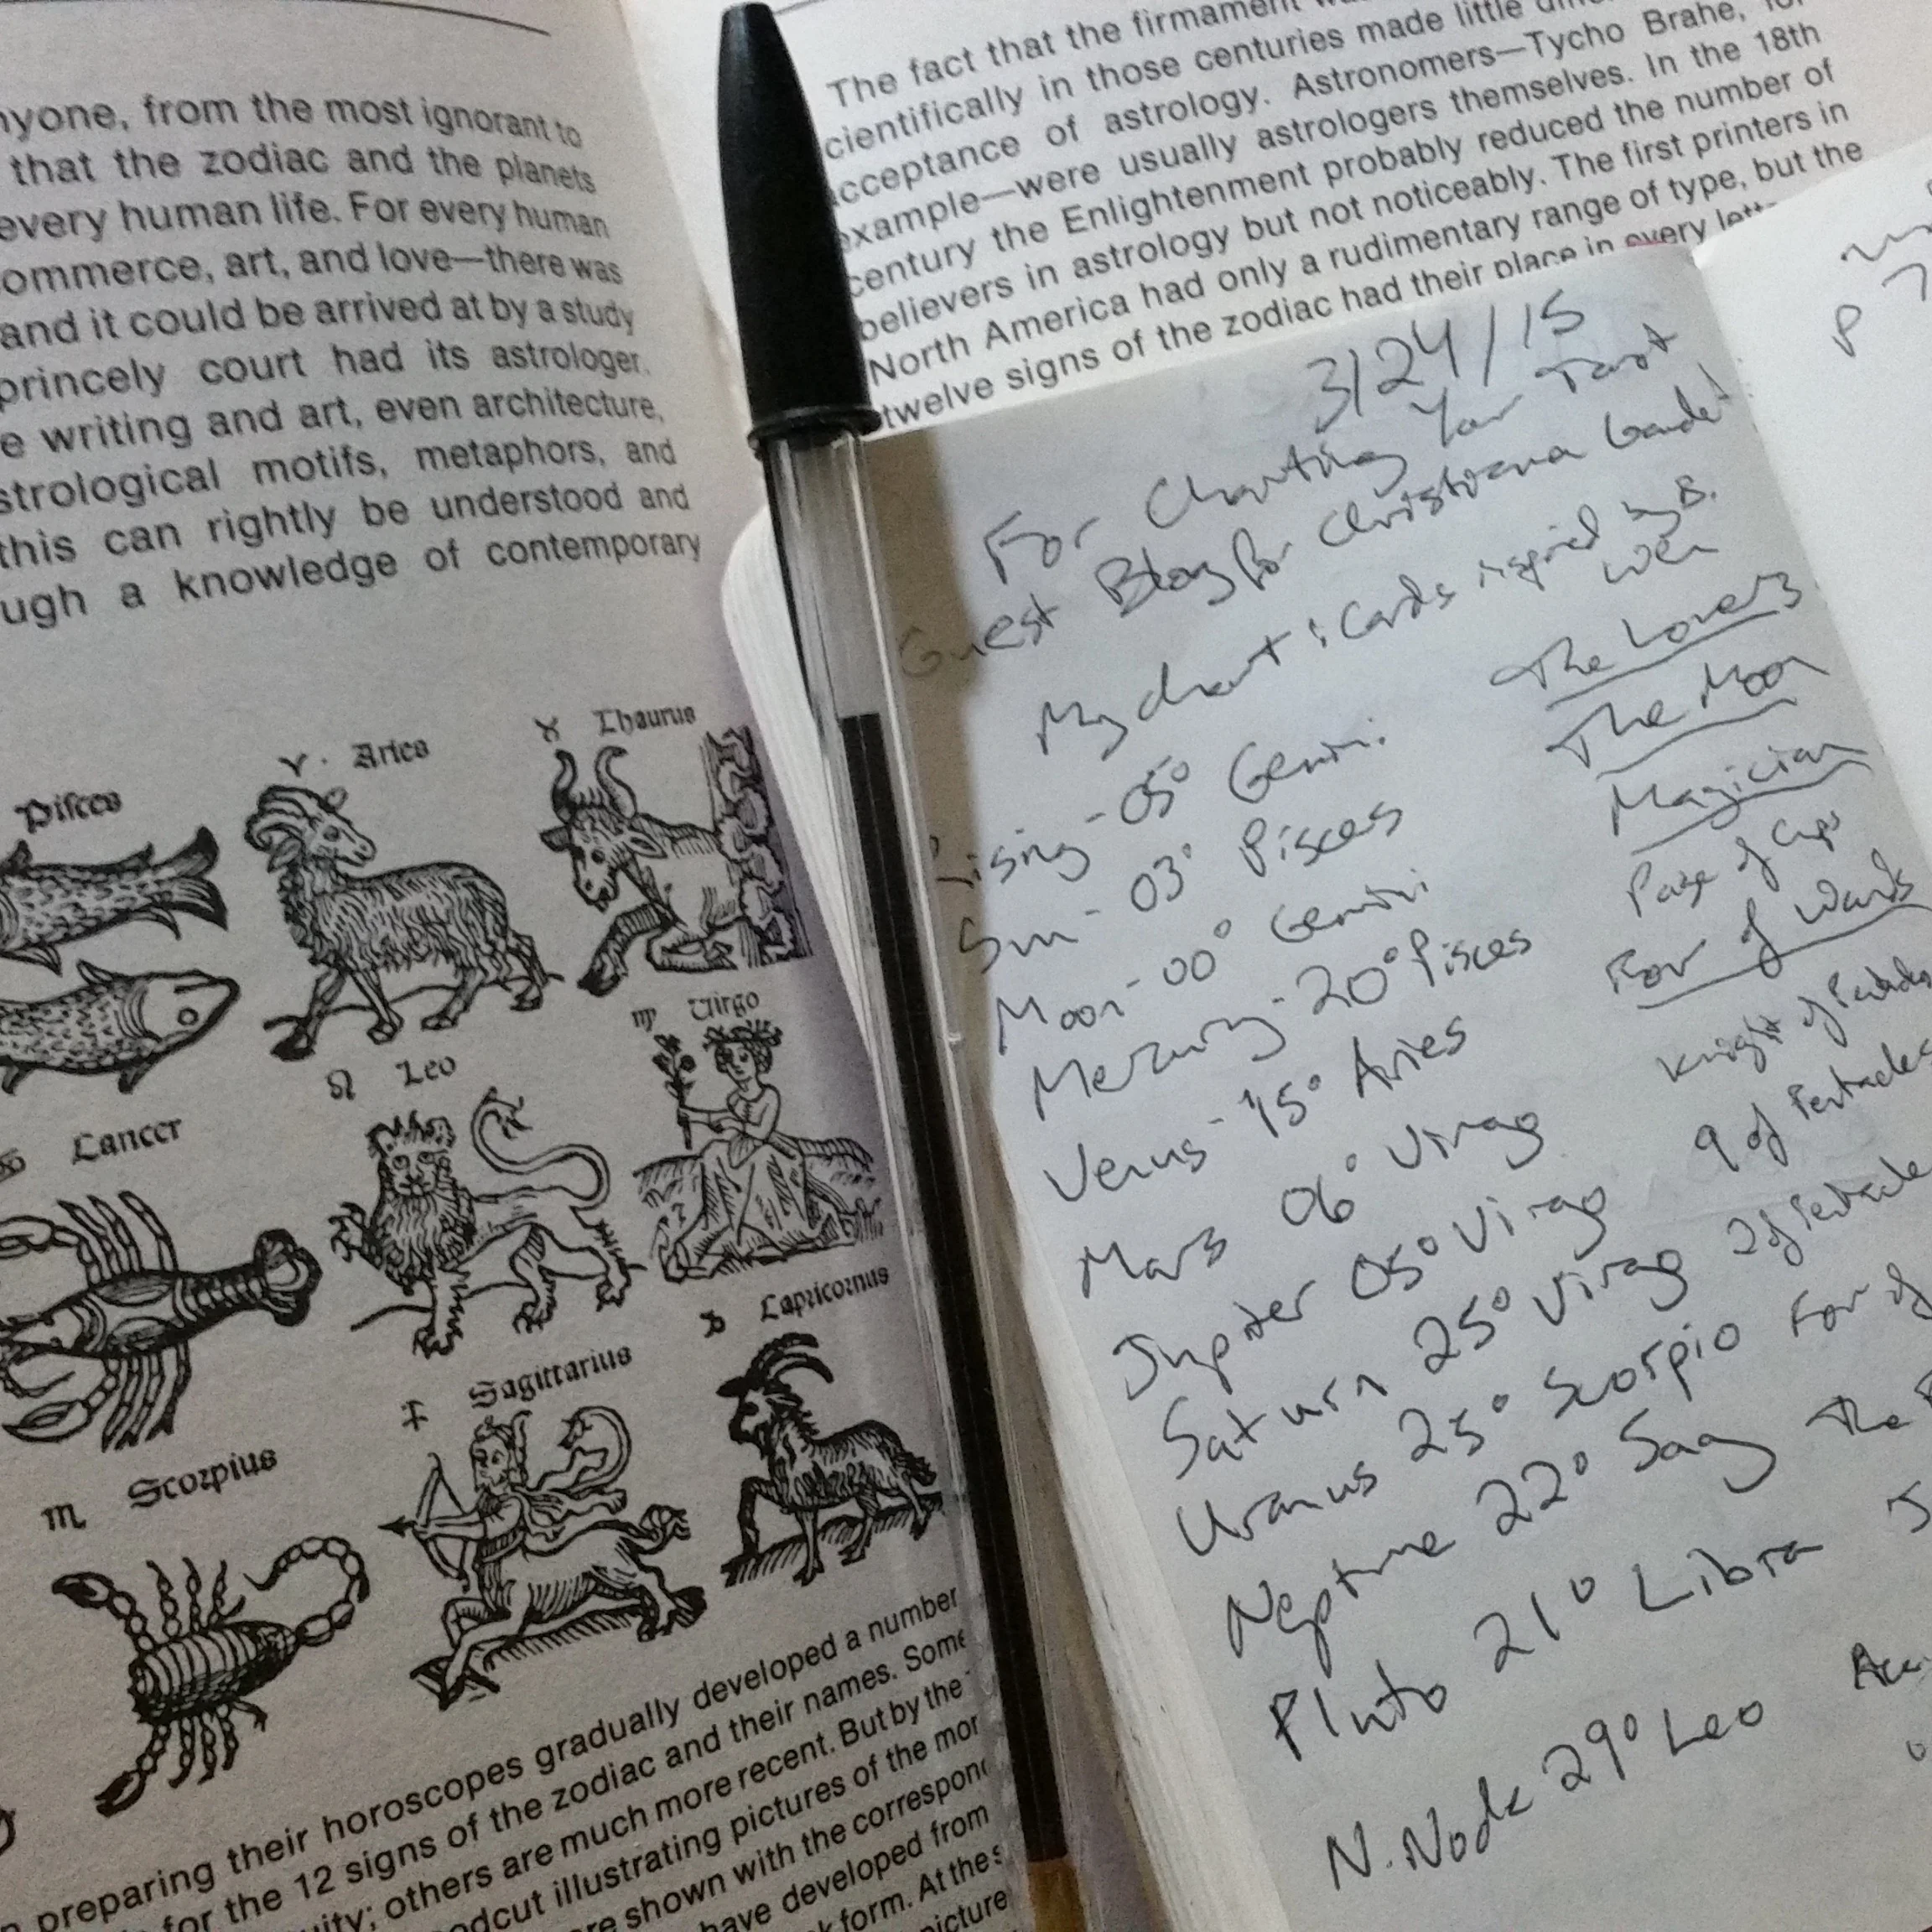 nyone, from the most ignorant to
that the zodiac and the planets
every human life. For every human
ommerce, art, and love—there was
and it could be arrived at by a study
princely court had its astrologer.
e writing and art, even architecture,
strological motifs, metaphors, and
this can rightly be understood and
ugh a knowledge of contemporary
Pisces
♈ · Aries
♉ Thaurus
Cancer
♌ Leo
♍ Virgo
♏ Scorpius
♐ Sagittarius
♑ Capricornus
preparing their horoscopes gradually developed a number
for the 12 signs of the zodiac and their names. Some
uity; others are much more recent. But by the
odcut illustrating pictures of the mor
re shown with the correspond
have developed from
k form. At the s
picture
The fact that the firmament
cientifically in those centuries made little
cceptance of astrology. Astronomers—Tycho Brahe, for
example—were usually astrologers themselves. In the 18th
century the Enlightenment probably reduced the number of
believers in astrology but not noticeably. The first printers in
North America had only a rudimentary range of type, but the
twelve signs of the zodiac had their place in every
3/24/15
For Charting Your Tarot
Guest Blog for Christiana Gaudet
My chart : Cards inspired by B.
Wen
Rising - 05° Gemini. The Lovers
Sun - 03° Pisces The Moon
Moon - 00° Gemini Magician
Mercury - 20° Pisces Page of Cups
Venus - 15° Aries Four of Wands
Mars 06° Virgo Knight of Pentacles
Jupiter 05° Virgo 9 of Pentacles
Saturn 25° Virgo 2 of Pentacle
Uranus 25° Scorpio Four of
Neptune 22° Sag The
Pluto 21° Libra J
N. Node 29° Leo
P 7